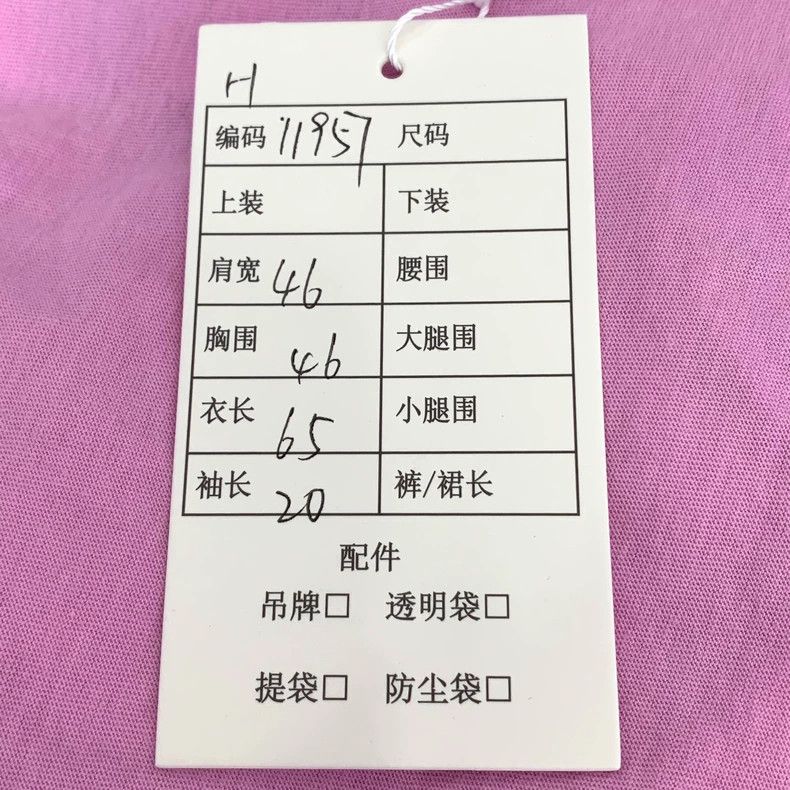 H
编码 11957 尺码
上装 下装
肩宽 46 腰围
胸围 46 大腿围
衣长 65 小腿围
袖长 20 裤/裙长
配件
吊牌□ 透明袋□
提袋□ 防尘袋□